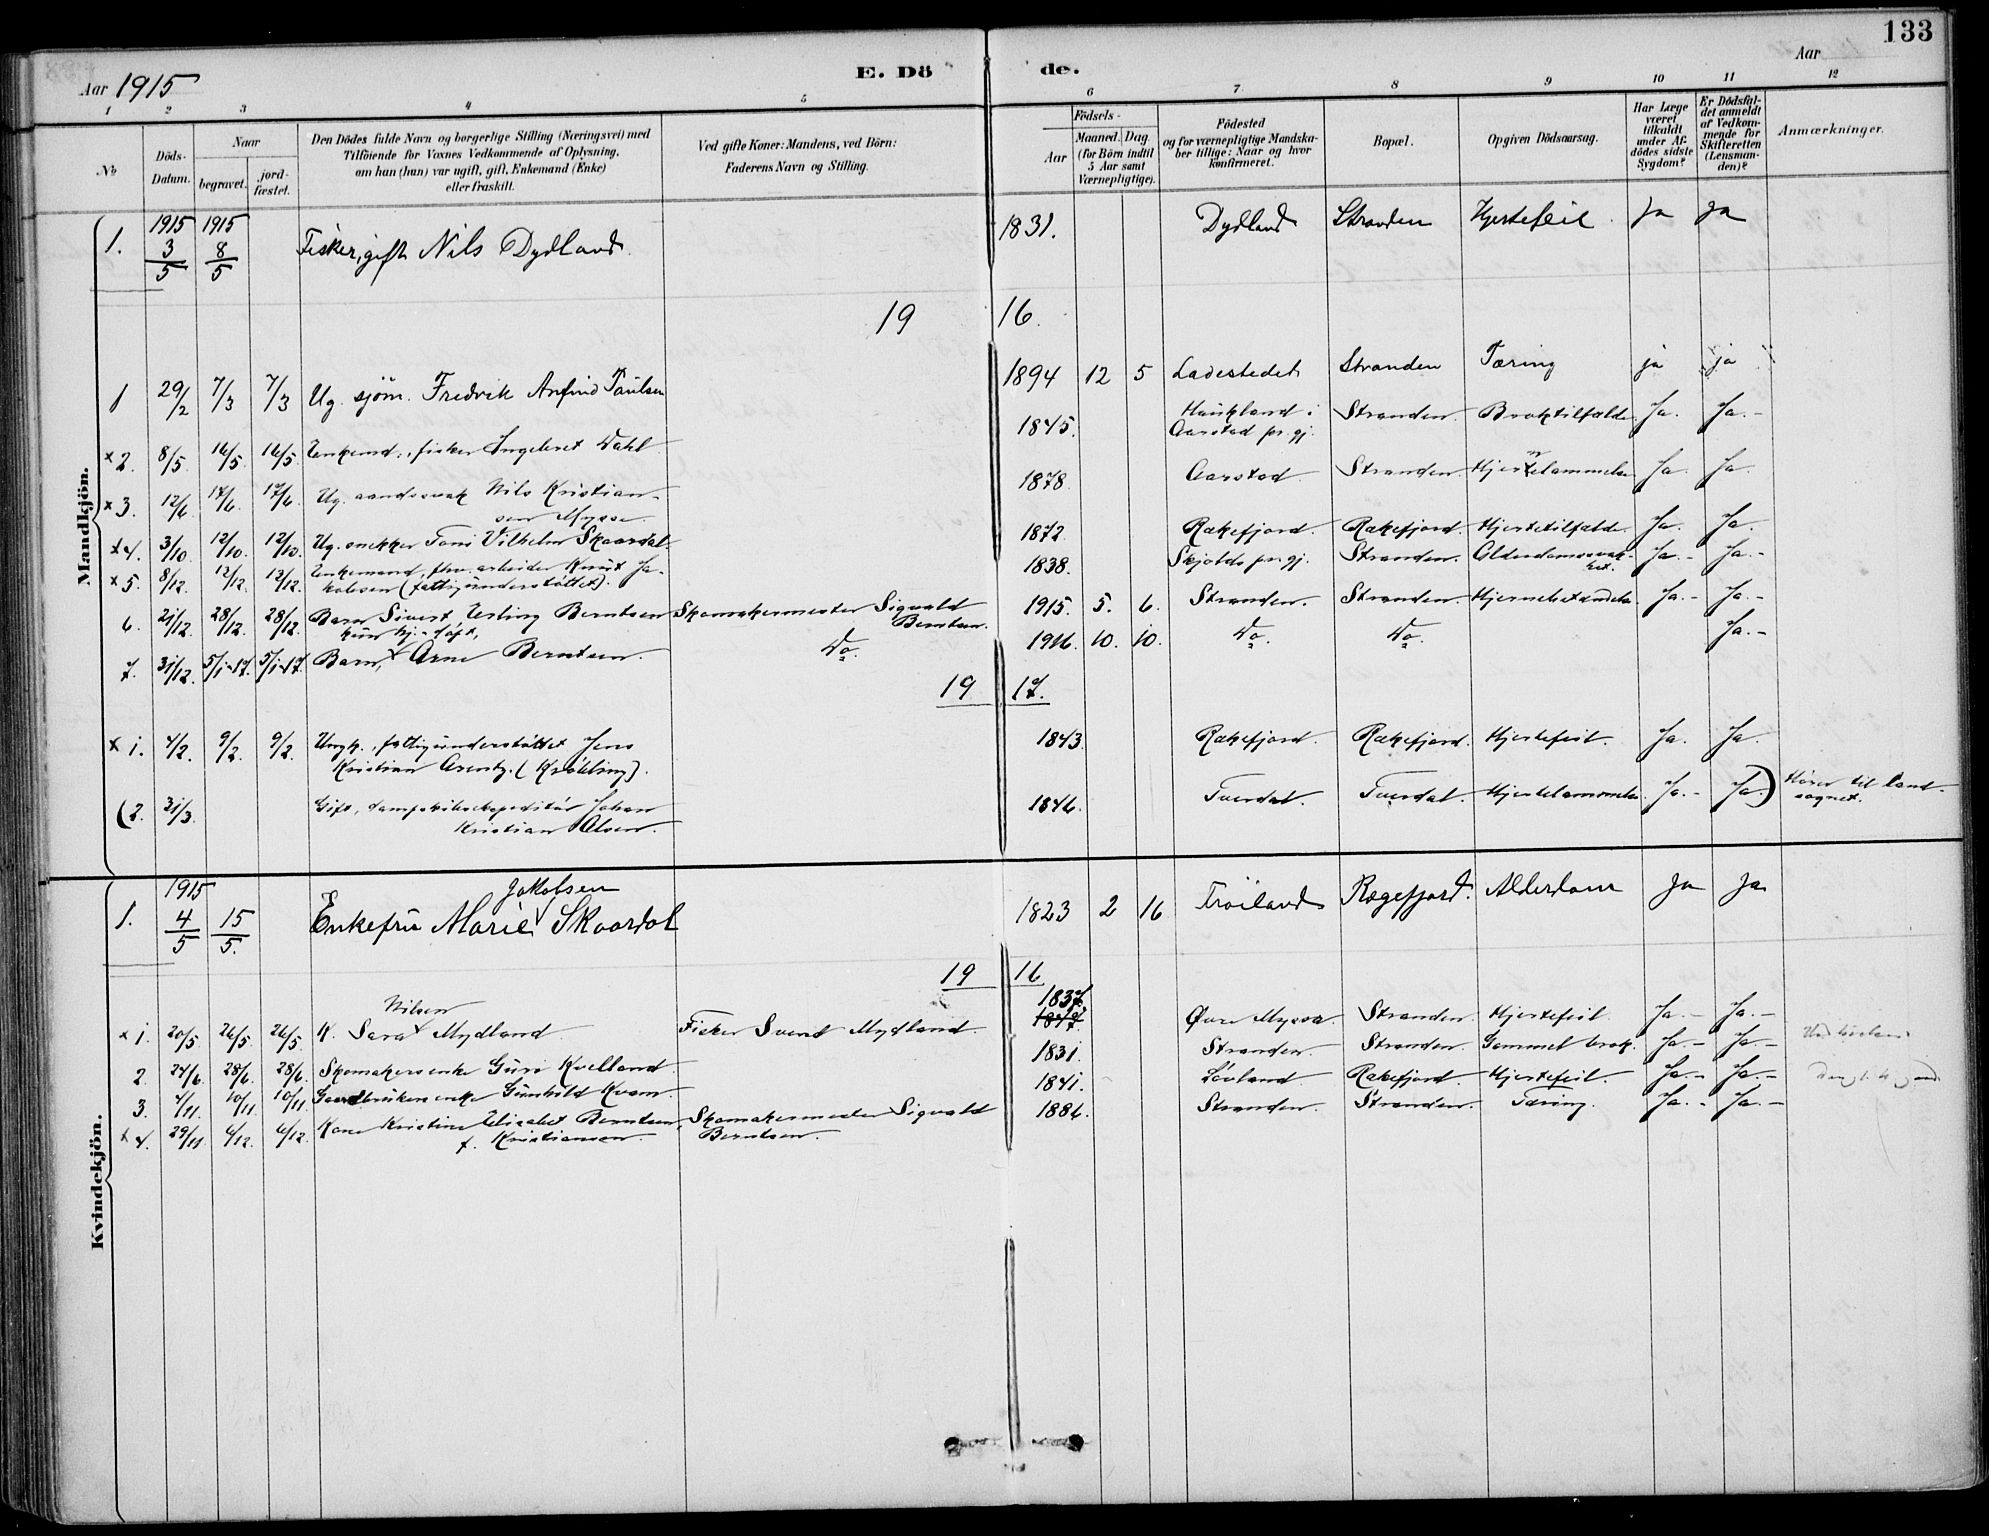 133
Aar 1915
E. Dö de.
Aar
1 2 3 4 5 6 7 8 9 10 11 12
No
Döds-Datum.
Naar
begravet.
jord-fæstet.
Den Dödes fulde Navn og borgerlige Stilling (Næringsvei) med
Tilföiende for Voxnes Vedkommende af Oplysning,
om han (hun) var ugift, gift, Enkemand (Enke)
eller fraskilt.
Ved gifte Koner: Mandens, ved Börn:
Faderens Navn og Stilling.
Födsels-
Aar
Maaned. Dag
(for Börn indtil
5 Aar samt
Værnepligtige).
Födested
og for værnepligtige Mandska-
ber tillige: Naar og hvor
konfirmeret.
Bopæl.
Opgiven Dödsaarsag.
Har Læge
været
tilkaldt
under Af-
dödes sidste
Sygdom?
Er Dödsfal-
det anmeldt
af Vedkom-
mende for
Skifteretten
(Lensman-
den)?
Anmærkninger.
Mandkjön.
1. 1915 3/5 1915 8/5 Fisker, gift Nils Dydland. 1831. Dydland Stranden Hjertefeil. Ja Ja
19 16.
1 29/2 7/3 7/3 Ug. sjöm. Fredrik Anfind Paulsen 1894 12 5 Ladestedet Stranden Tæring ja ja
x 2. 8/5. 16/5. 16/5. Enkemd., fisker Ingebret Dahl 1845. Haukland i Aarstad pr.gj. Stranden. Broktilfælde. Ja. Ja.-
x 3. 12/6. 17/6. 17/6. Ug. aandssvak Nils Kristian-
sen Mysse 1878. Aarstad. Stranden. Hjertelammelse Ja. Ja.
x 4. 3/10. 12/10. 12/10. Ug. snekker Toni Vilhelm Skaardal. 1872. Rækefjord. Rækefjord. Hjertetilfælde. Ja. Ja.
x 5. 8/12. 12/12. 12/12. Enkemand, fhv. arbeider Knut Ja-
kobsen (fattigunderstöttet). 1838. Skjolds pr.gj. Stranden. Alderdomssvak-
het. Ja.- Ja.-
6. 21/12. 28/12. 28/12. Barn Sivert Esling Berntsen Skomakermester Sigvald
Berntsen. 1915. 5. 6. Stranden. Stranden. Ja.- Ja.-
kun hj.-döpt,
7. 31/12. 5/1-17. 5/1-17. Barn, Arne Berntsen. Do. 1916. 10. 10. Do. Do. Ja.-
19 17.
x 1. 4/2. 9/2. 9/2. Ungk., fattigunderstöttet Jens
Kristian Arentz. 1843. Rækefjord. Rækefjord. Hjertefeil. Ja. Ja.
(2. 31/3. Gift, dampskibsekspeditör Johan
Kristian Olsen. 1846. Tuerdal. Tuerdal. Hjertelammelse Ja.- Ja.) Hörer til land-
sognet.
Kvindekjön.
1. 1915 4/5 15/5. Jakobsen
Enkefru Marie Skaardal 1823 2 16 Tröiland Rægefjord. Alderdom Ja Ja
19 16
Nilsen
x 1. 20/5. 26/5. 26/5. K. Sara Mydland. Fisker Svend Mydland. 1837. 1847. Övre Myssa. Stranden. Hjertefeil. Ja.- Ja.-
2. 24/6. 28/6. 28/6. Skomakersenke Guri Kvelland. 1831. Stranden. Stranden. Gammel brok. Ja.- Ja.-
3. 4/11. 10/11. 10/11. Gaardbrukersenke Gunhild Kvam. 1841. Lövland Rækefjord. Hjertefeil. Ja.- Ja.-
x 4. 29/11. 6/12. 6/12. Kone Kristine Elisabet Berntsen, Skomakermester Sigvald
f. Kristiansen. Berntsen. 1886. Stranden. Stranden. Tæring. Ja.- Ja.-